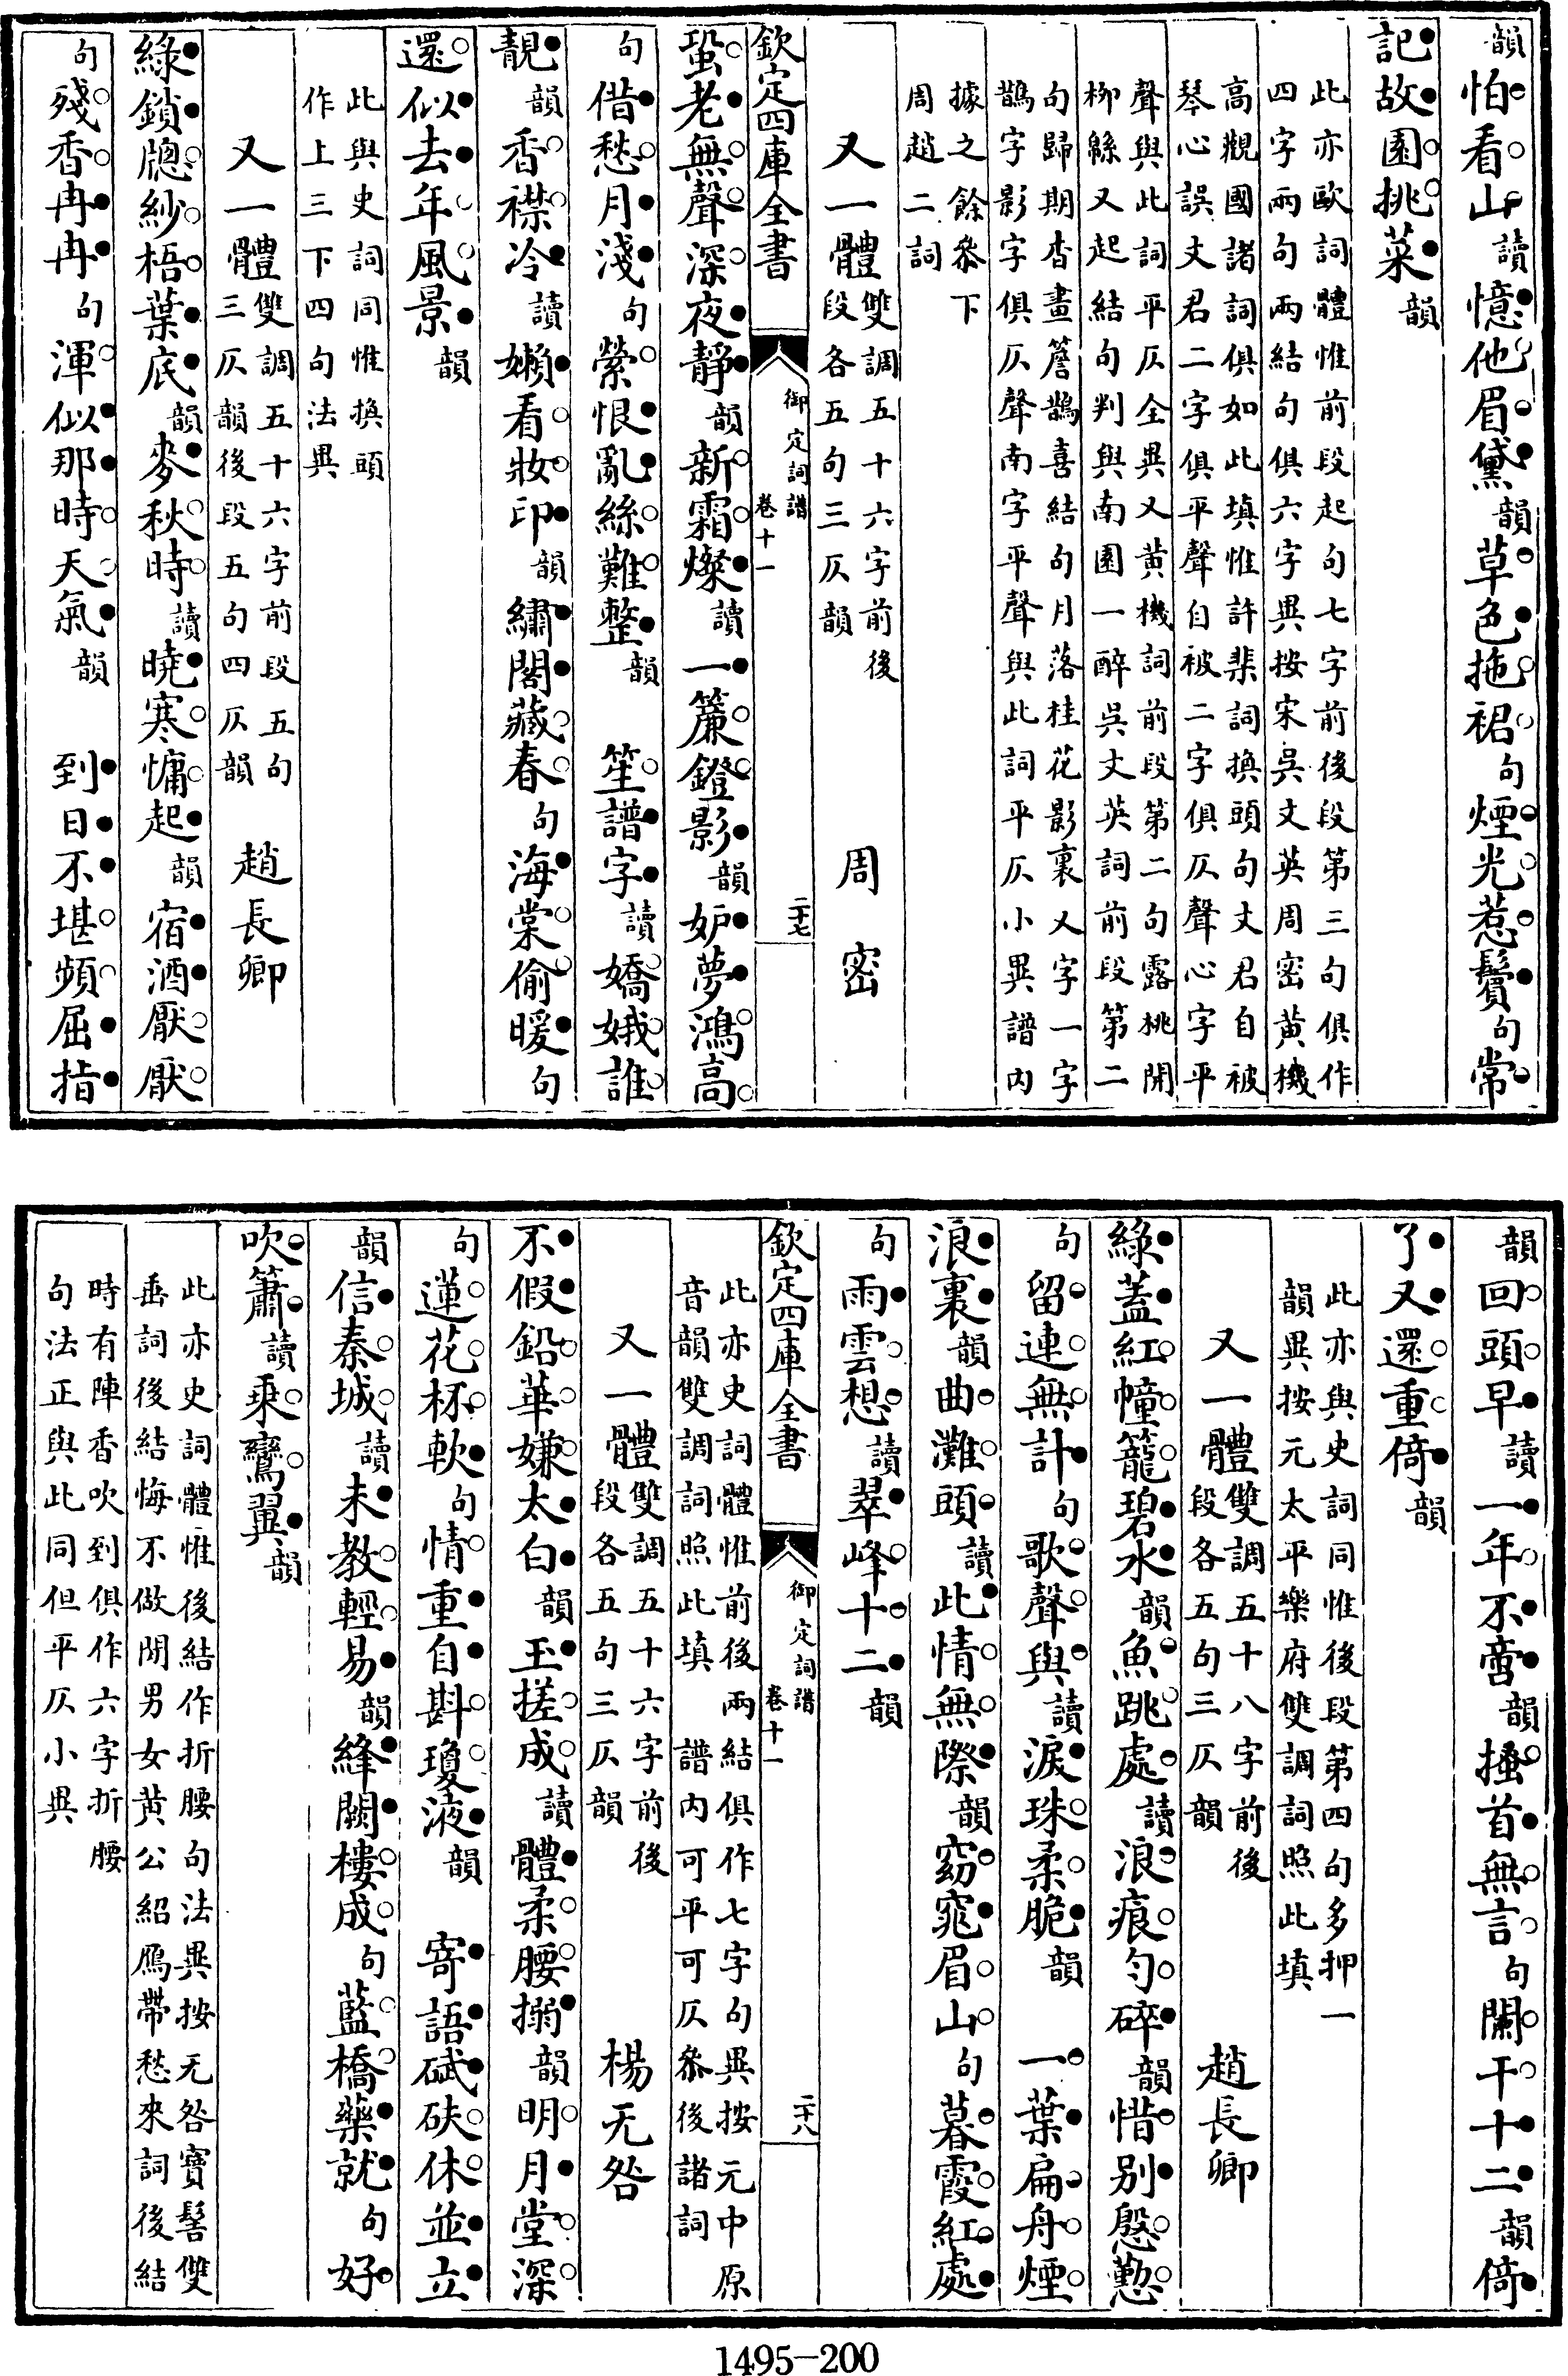 韻怕看山讀憶他眉黛韻草色拖裙句煙光惹鬢句常
記故園挑菜韻
此亦歐詞體惟前段起句七字前後段第三句俱作
四字兩句兩結句俱六字異按宋吳文英周密黄機
高觀國諸詞俱如此填惟許棐詞換頭句丈君自被
琴心誤丈君二字俱平聲自被二字俱仄聲心字平
聲與此詞平仄全異又黄機詞前段第二句露桃開
柳緜又起結句判與南園一醉吳文英詞前段第二
句歸期杳畫簷鵲喜結句月落桂花影裏又字一字
鵲字影字俱仄聲南字平聲與此詞平仄小異譜内
據之餘叅下
周趙二詞
又一體雙調五十六字前後
段各五句三仄韻
周密
欽定四庫全書
御定詞譜
卷十一
二十七
蛩老無聲深夜靜韻新霜燦讀一簾鐙影韻妒夢鴻高
句借愁月淺句縈恨亂絲難整韻笙譜字讀嬌娥誰
靚韻香襟冷讀嬾看妝印韻繡閣藏春句海棠偷暖句
還似去年風景韻
此與史詞同惟換頭
作上三下四句法異
又一體雙調五十六字前段五句
三仄韻後段五句四仄韻
趙長卿
綠鎖牕紗梧葉底韻麥秋時讀曉寒慵起韻宿酒厭厭
句殘香冉冉句渾似那時天氣韻到日不堪頻屈指
韻回頭早讀一年不啻韻搔首無言句闌干十二韻倚
了又還重倚韻
此亦與史詞同惟後段第四句多押一
韻異按元太平樂府雙調詞照此填
又一體雙調五十八字前後
段各五句三仄韻
趙長卿
綠蓋紅幢籠碧水韻魚跳處讀浪痕勻碎韻惜别慇懃
句留連無計句歌聲與讀淚珠柔脆韻一葉扁舟煙
浪裏韻曲灘頭讀此情無際韻窈窕眉山句暮霞紅處
句雨雲想讀翠峰十二韻
欽定四庫全書
御定詞譜
卷十一
二十八
此亦史詞體惟前後兩結俱作七字句異按元中原
音韻雙調詞照此填譜内可平可仄叅後諸詞
又一體雙調五十六字前後
段各五句三仄韻
楊无咎
不假鉛華嫌太白韻玉搓成讀體柔腰搦韻明月堂深
句蓮花杯軟句情重自斟瓊液韻寄語碔砆休並立
韻信秦城讀未教輕易韻絳闕樓成句藍橋藥就句好
吹簫讀乘鸞翼韻
此亦史詞體惟後結作折腰句法異按无咎寶髻雙
垂詞後結悔不做閒男女黄公紹鴈帶愁來詞後結
時有陣香吹到俱作六字折腰
句法正與此同但平仄小異
1495-200